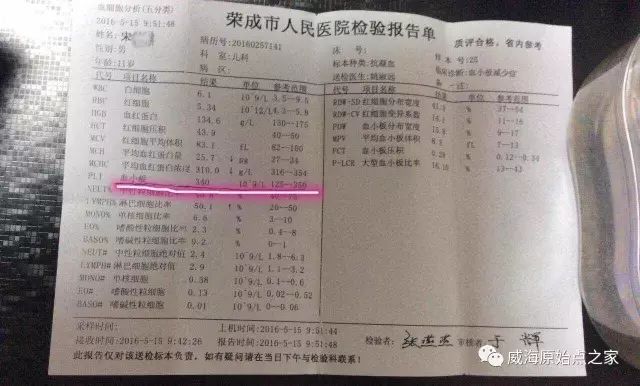 血细胞分析(五分类)
2016-5-15 9:51:48
荣成市人民医院检验报告单
质评合格，省内参考
姓名:宋
性别:男
年龄:11岁
病历号:20160257141
科 室:儿科
病 区:
床 号:
标本种类:抗凝血
送检医生:姚淑远
样本号:25
临床诊断:血小板减少症
备 注:
代号 项目名称 结果 单位 参考范围
WBC 白细胞 6.1 10^9/L 3.5--9.5
RBC 红细胞 5.34 10^12/L 4.3--5.8
HGB 血红蛋白 134.6 g/L 130--175
HCT 红细胞压积 43.9 40--50
MCV 平均红细胞体积 83.1 fL 82--100
MCH 平均血红蛋白量 25.7 ↓ pg 27--34
MCHC 平均血红蛋白浓度 310.0 ↓ g/L 316--354
PLT 血小板 340 10^9/L 125--350
NEUT% 中性粒细胞比率 40--75
LYMPH% 淋巴细胞比率 50.1 ↑ % 20--50
MONO% 单核细胞比率 6.6 % 3--10
EO% 嗜酸性粒细胞比率 2.3 % 0.4--8
BASO% 嗜碱性粒细胞比率 0.2 % 0--1
NEUT# 中性粒细胞绝对值 2.4 10^9/L 1.8--6.3
LYMPH# 淋巴细胞绝对值 2.9 10^9/L 1.1--3.2
MONO# 单核细胞 0.38 10^9/L 0.1--0.6
EO# 嗜酸性粒细胞 0.13 10^9/L 0.02--0.52
BASO# 嗜碱性粒细胞 0.01 10^9/L 0--0.06
代号 项目名称 结果 单位 参考范围
RDW-SD 红细胞分布宽度 37--54
RDW-CV 红细胞变异系数 % 11--16
PDW 血小板分布宽度 % 9--17
MPV 平均血小板体积 fL
PCT 血小板压积 %
P-LCR 大型血小板比率 %
采样时间:
上机时间:2016-5-15 9:51:44
接收时间:2016-5-15 9:42:26
报告时间:2016-5-15 9:51:48
检验者:
审核者:于辉
此报告仅对该送检标本负责，如有疑问请在当日下午与检验科联系！
威海原始点之家